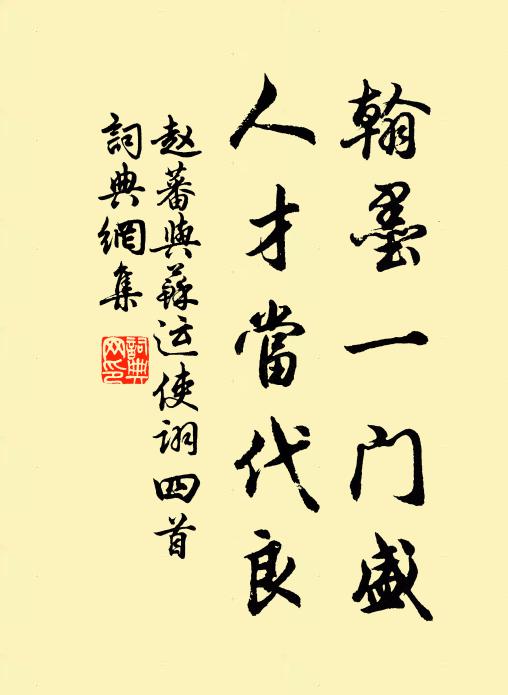 翰墨一门盛
人才當代良
赵蕃與蘇运使诩四首
詞典網集
詞典網印